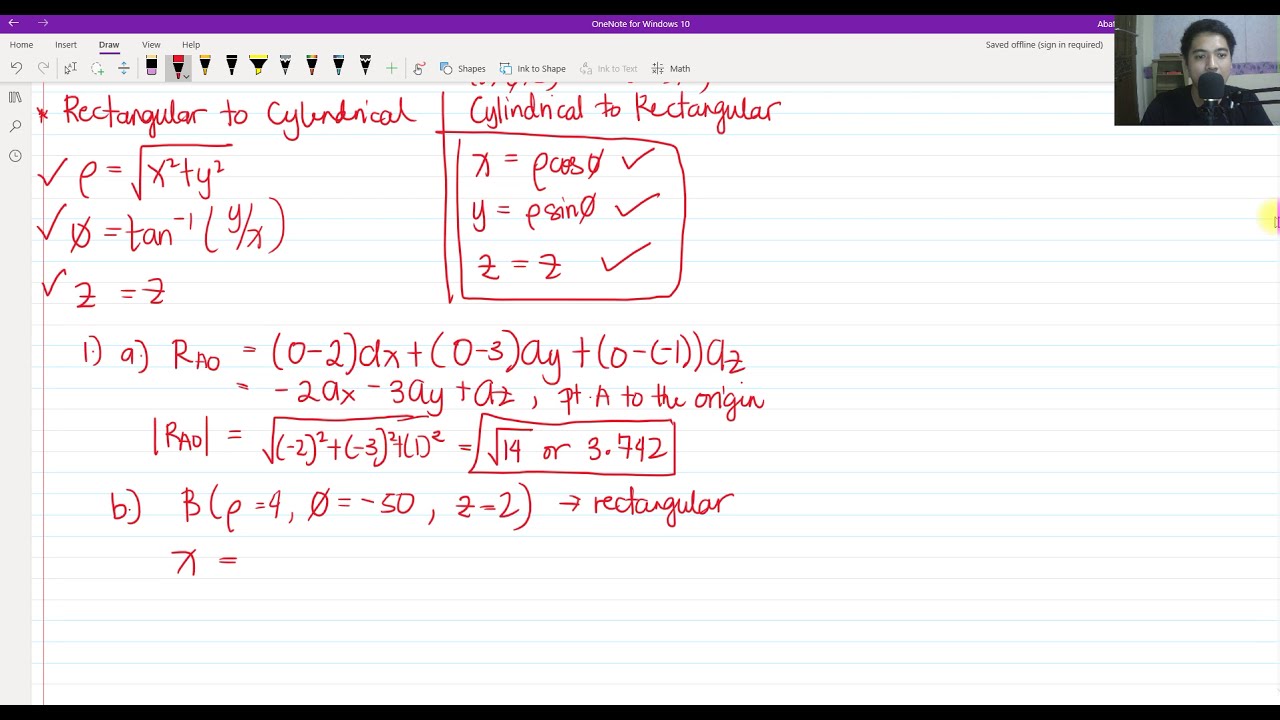 OneNote for Windows 10
Abat
Home Insert Draw View Help
Saved offline (sign in required)
Shapes Ink to Shape Ink to Text Math
* Rectangular to Cylindrical
✓ ρ = √x²+y²
✓ ø = tan⁻¹ (y/x)
✓ z = z
Cylindrical to Rectangular
x = ρcosø ✓
y = ρsinø ✓
z = z ✓
1.) a.) R_AO = (0-2)ax + (0-3)ay + (0-(-1))az
= -2ax - 3ay + az, pt. A to the origin
|R_AO| = √(-2)²+(-3)²+(1)² = √14 or 3.742
b.) B(ρ=4, ø=-50, z=2) → rectangular
x =